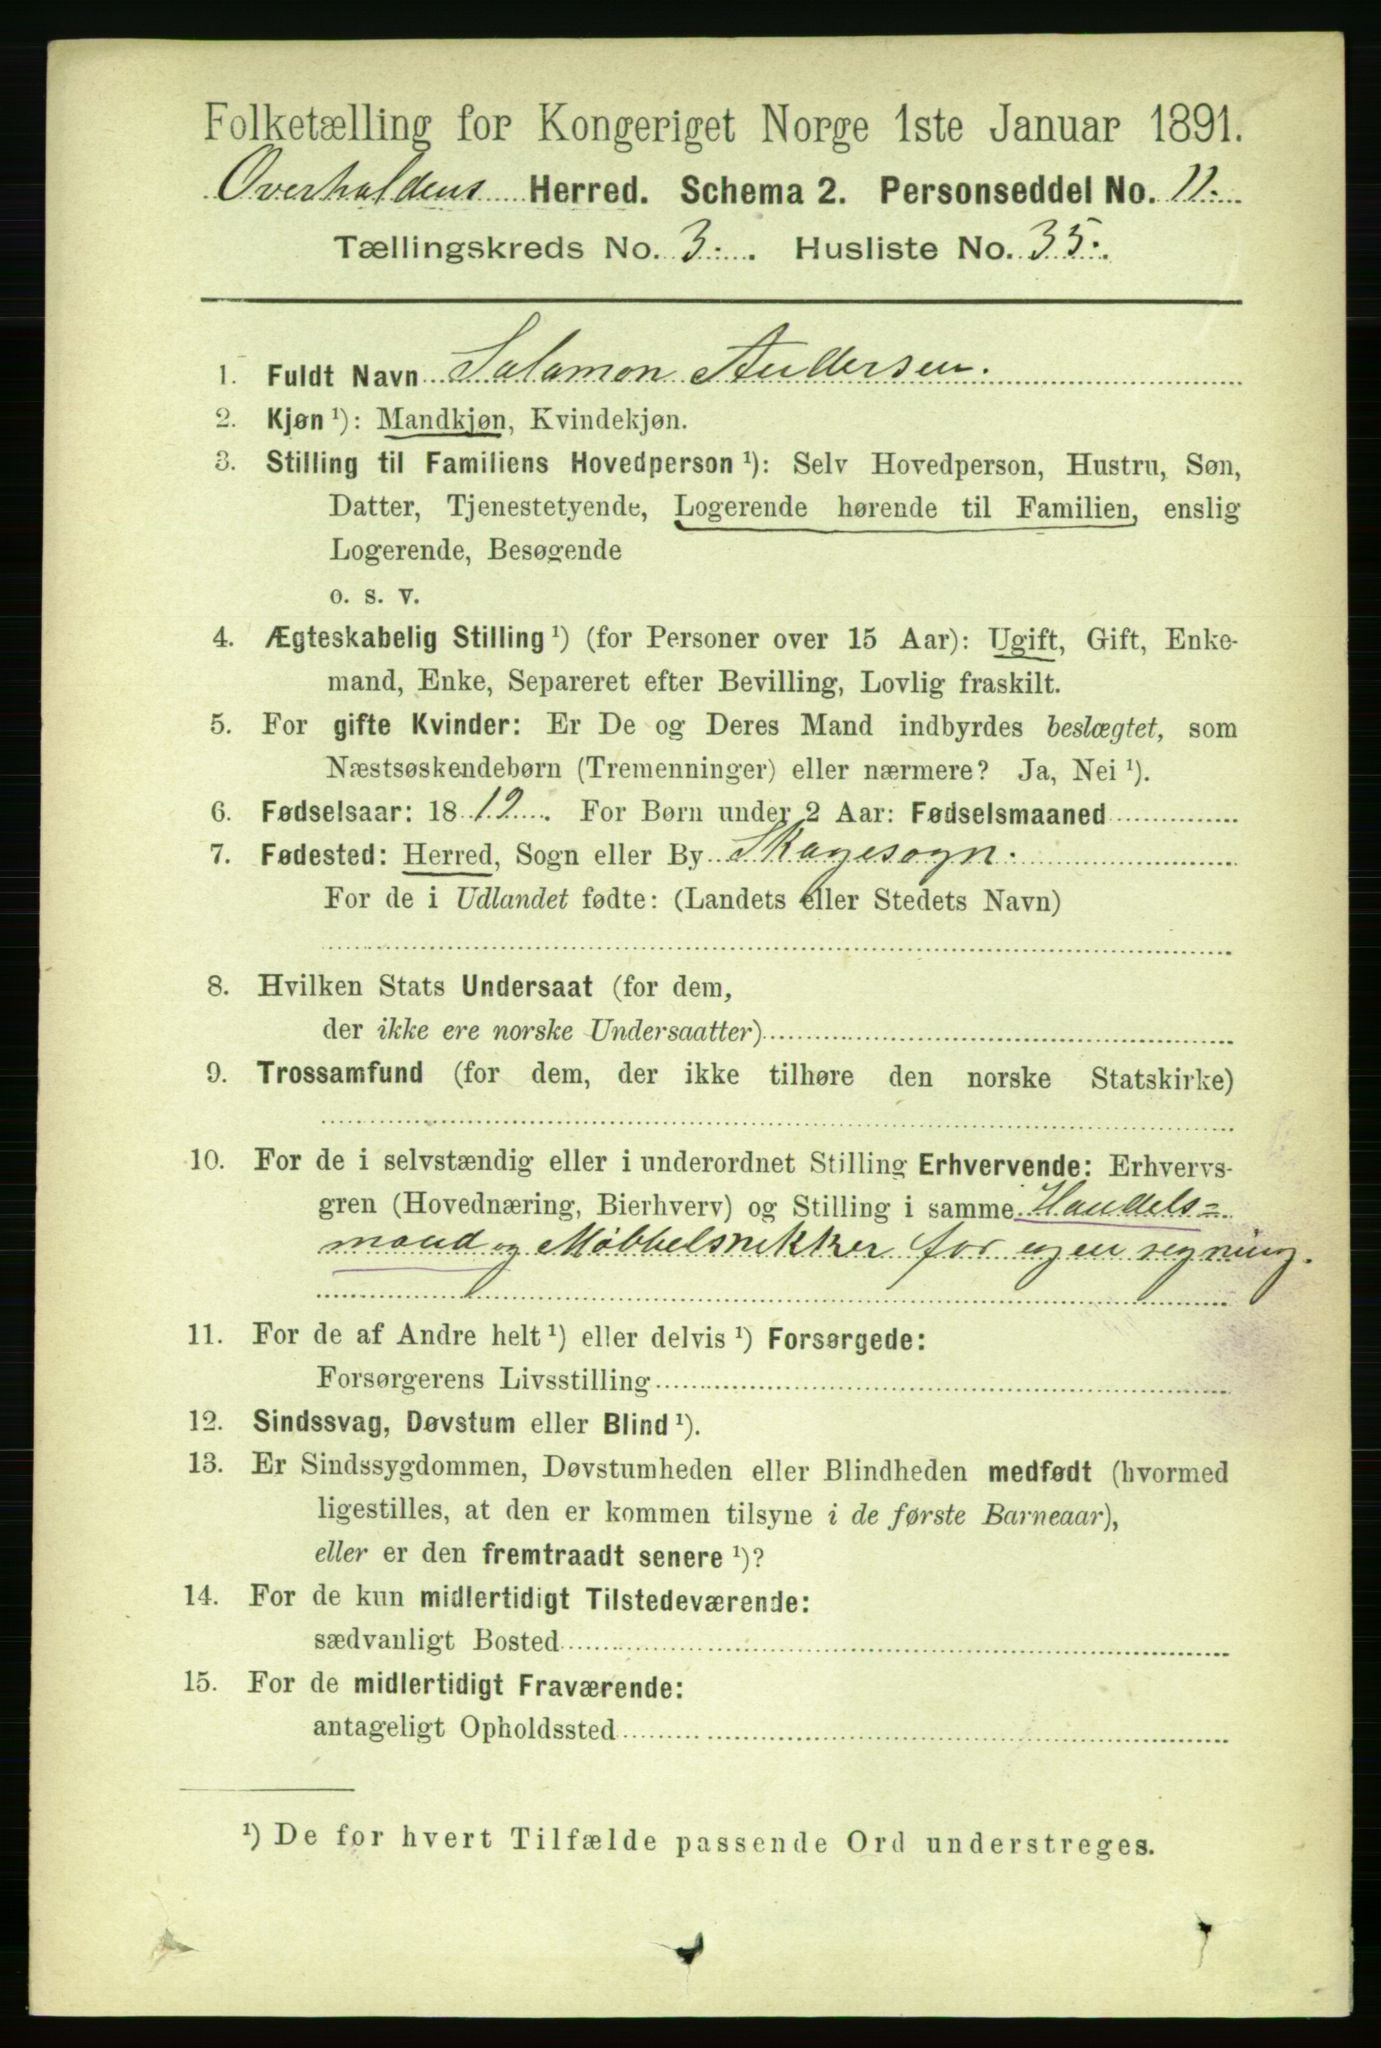 Folketælling for Kongeriget Norge 1ste Januar 1891.
Overhaldens Herred. Schema 2. Personseddel No. 11.
Tællingskreds No. 3. Husliste No. 35.
1. Fuldt Navn Salamon Andersen.
2. Kjøn ¹): Mandkjøn, Kvindekjøn.
3. Stilling til Familiens Hovedperson ¹): Selv Hovedperson, Hustru, Søn,
Datter, Tjenestetyende, Logerende hørende til Familien, enslig
Logerende, Besøgende
o. s. v.
4. Ægteskabelig Stilling ¹) (for Personer over 15 Aar): Ugift, Gift, Enke-
mand, Enke, Separeret efter Bevilling, Lovlig fraskilt.
5. For gifte Kvinder: Er De og Deres Mand indbyrdes beslægtet, som
Næstsøskendebørn (Tremenninger) eller nærmere? Ja, Nei ¹).
6. Fødselsaar: 1812. For Børn under 2 Aar: Fødselsmaaned
7. Fødested: Herred, Sogn eller By Skagesogn.
For de i Udlandet fødte: (Landets eller Stedets Navn)
8. Hvilken Stats Undersaat (for dem,
der ikke ere norske Undersaatter)
9. Trossamfund (for dem, der ikke tilhøre den norske Statskirke)
10. For de i selvstændig eller i underordnet Stilling Erhvervende: Erhvervs-
gren (Hovednæring, Bierhverv) og Stilling i samme Handels=
mand og Møbbelsnekker for egen regning.
11. For de af Andre helt ¹) eller delvis ¹) Forsørgede:
Forsørgerens Livsstilling
12. Sindssvag, Døvstum eller Blind ¹).
13. Er Sindssygdommen, Døvstumheden eller Blindheden medfødt (hvormed
ligestilles, at den er kommen tilsyne i de første Barneaar),
eller er den fremtraadt senere ¹)?
14. For de kun midlertidigt Tilstedeværende:
sædvanligt Bosted
15. For de midlertidigt Fraværende:
antageligt Opholdssted
¹) De for hvert Tilfælde passende Ord understreges.